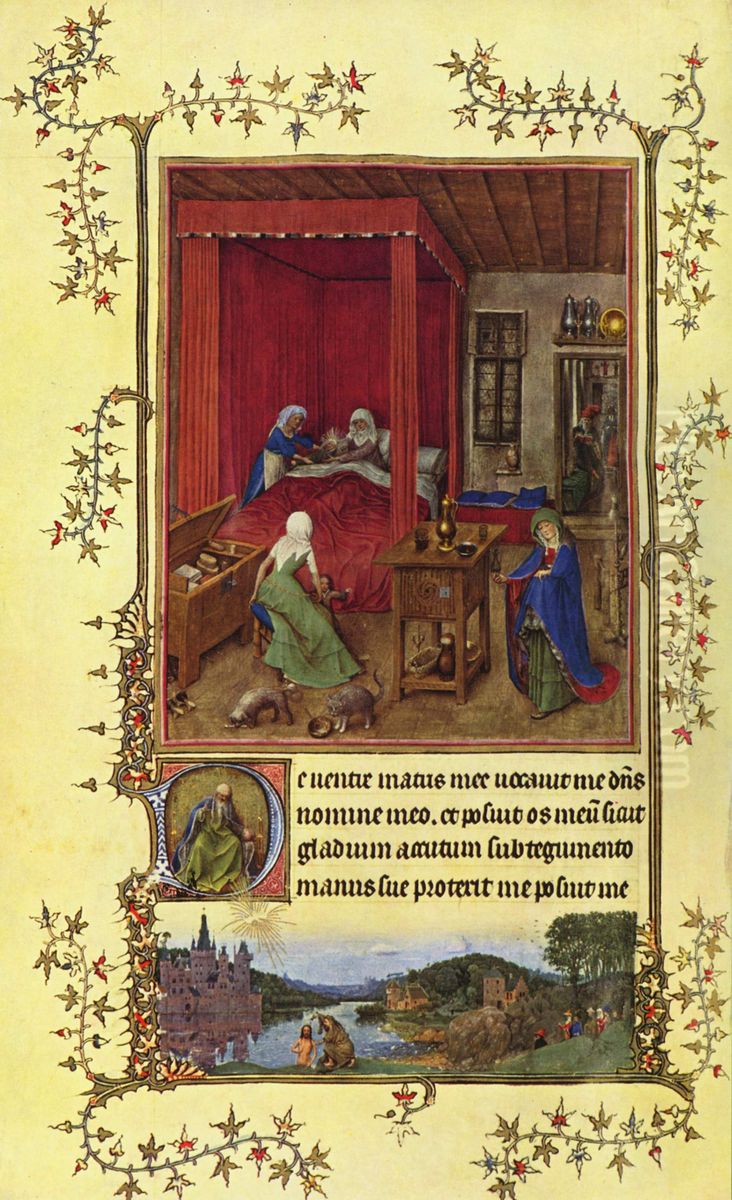 De uentre matris mee uocauit me dn̄s
nomine meo. et posuit os meū sicut
gladium accutum sub tegumento
manus sue proterit me posuit me